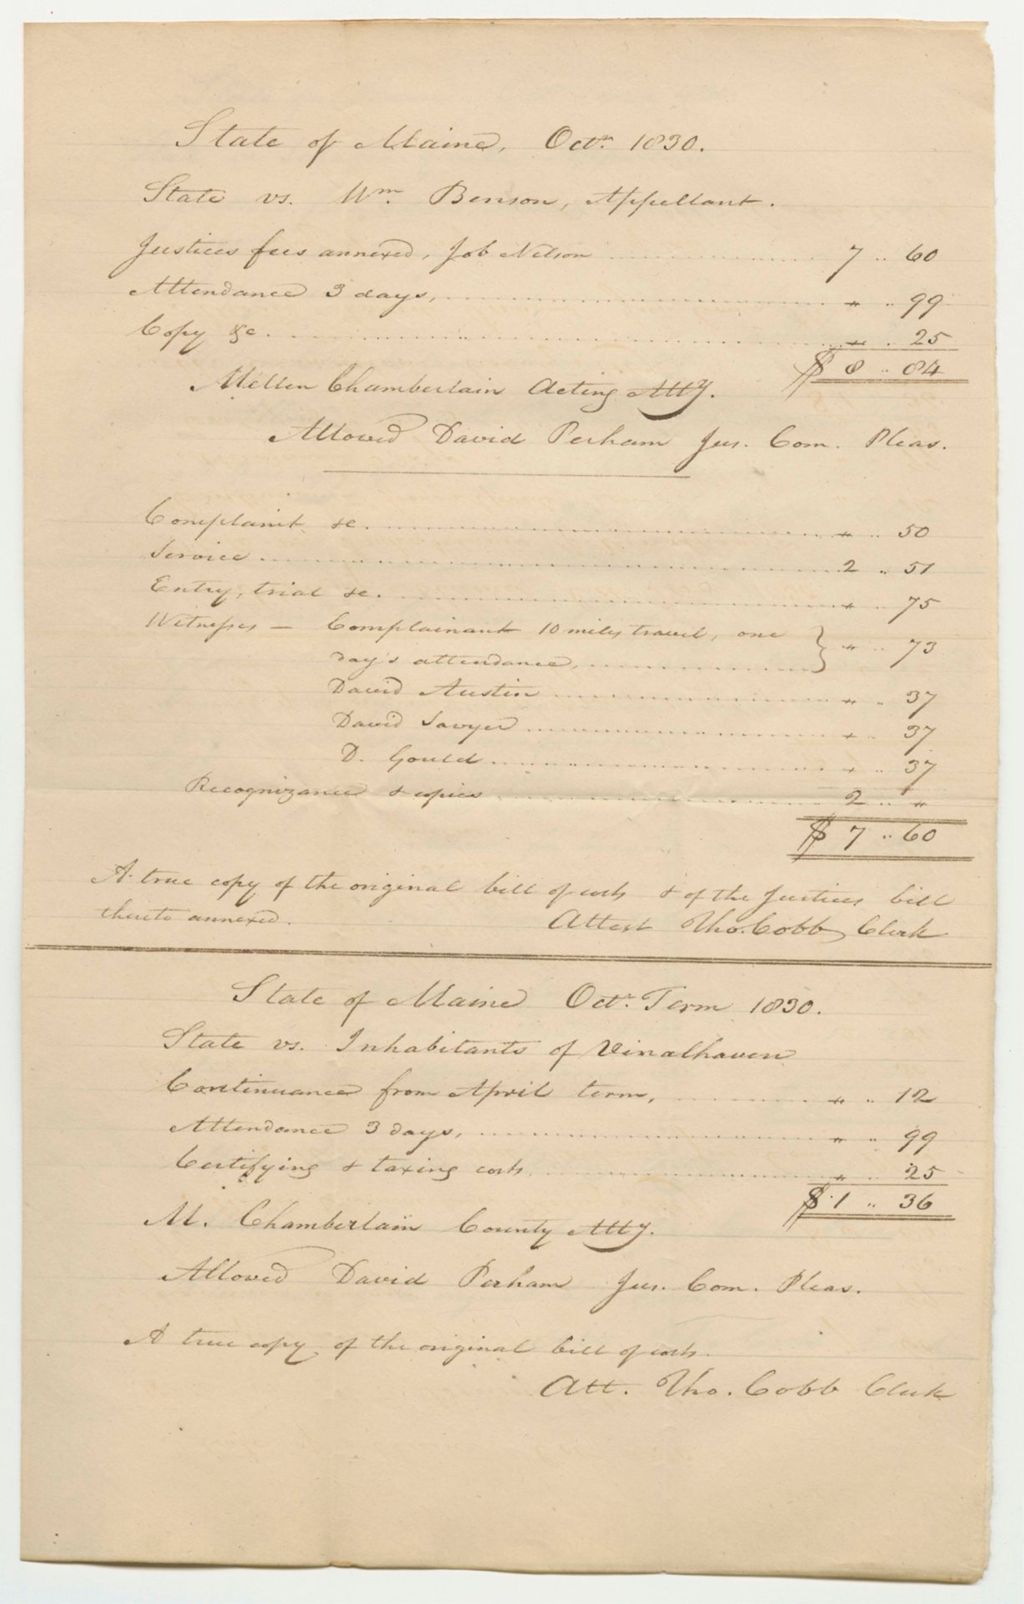 State of Maine, Octr. 1830.
State vs. Wm. Benson, Appellant.
Justices fees annexed, Job Nelson 7 .. 60
Attendance 3 days, " .. 99
Copy &c. " . 25
$ 8 .. 84
Mellen Chamberlain Acting Atty.
Allowed David Perham Jus. Com. Pleas.
Complaint &c. " .. 50
Service 2 .. 51
Entry, trial &c. " .. 75
Witnesses — Complainant 10 miles travel, one
day's attendance, } " .. 73
David Austin " .. 37
David Sawyer " .. 37
D. Gould " .. 37
Recognizance & copies 2 .. "
$ 7 .. 60
A true copy of the original bill of costs & of the Justices bill
thereto annexed. Attest Tho. Cobb, Clerk
State of Maine Octr. Term 1830.
State vs. Inhabitants of Vinalhaven
Continuance from April term, " .. 12
Attendance 3 days, " .. 99
Certifying & taxing costs " .. 25
$ 1 .. 36
M. Chamberlain County Atty.
Allowed David Perham Jus. Com. Pleas.
A true copy of the original bill of costs.
Att. Tho. Cobb Clerk